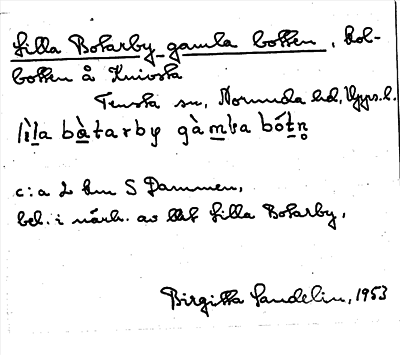 Lilla Botarby gamla botten, kol-
botten å Knivsta
Tensta sn, Norunda hd, Upps. l.
lìla bàtarby gàmba bótn̥
c:a 2 km S Dammen,
bel. i närh. av Lilla Botarby.
Birgitta Sandelin, 1953